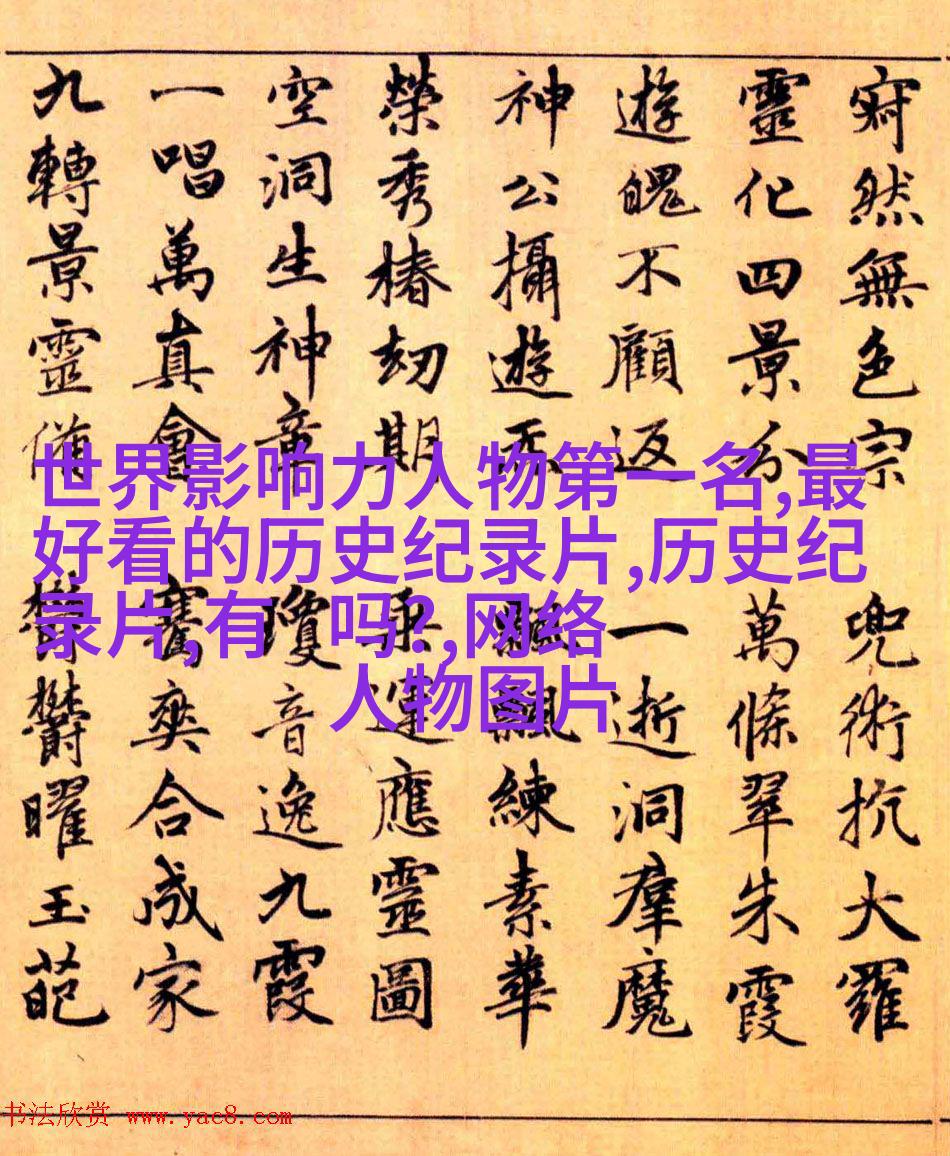 寂然無色宗 兜術抗大羅
靈化四景分 萬條翠朱霞
遊魄不顧返 一逝洞羣魔
神公攝遊炁 飄飄練素華
榮秀椿劫期 乘運應靈圖
空洞生神章 瓊音逸九霞
一唱萬真會 騫爽合成家
九轉景靈備 鬱鬱曜玉葩
世界影响力人物第一名,最
好看的历史纪录片,历史纪
录片,有 吗?,网络
人物图片
书法欣赏 www.yac8.com